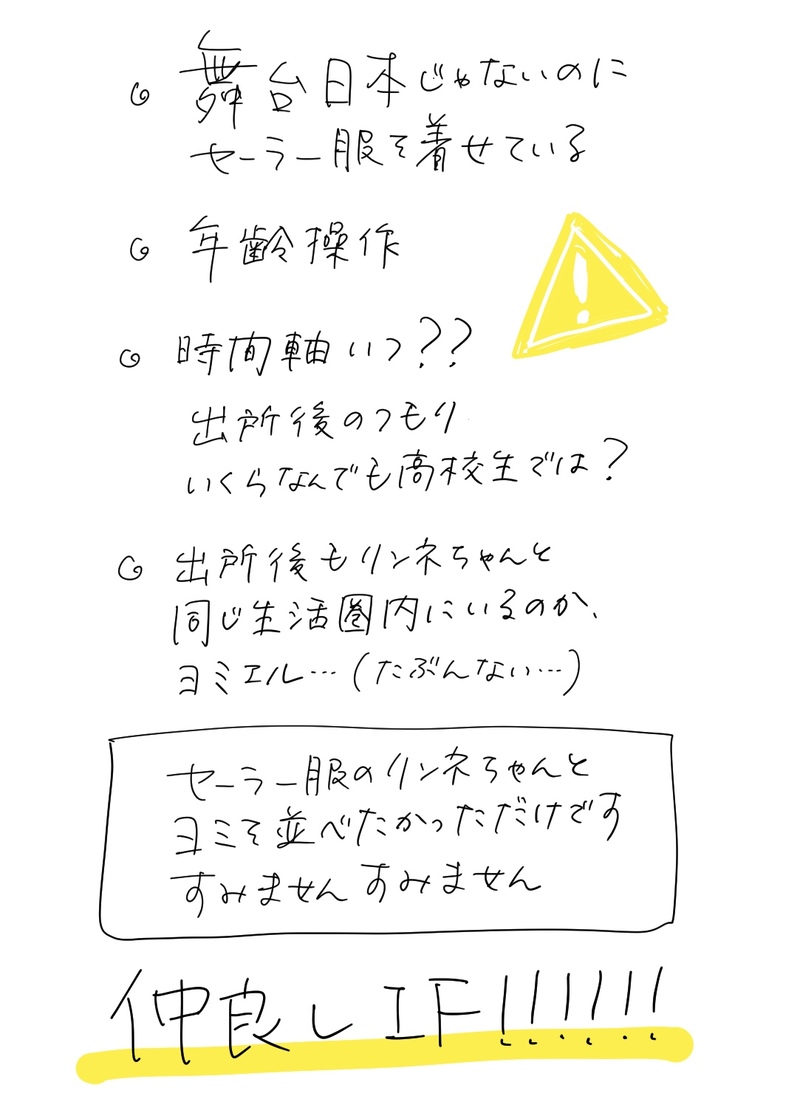 舞台日本じゃないのに
セーラー服を着せている
年齢操作
時間軸いつ??
出所後のつもり
いくらなんでも高校生では?
出所後もリンネちゃんと
同じ生活圏内にいるのか、
ヨミエル…(たぶんない…)
!
セーラー服のリンネちゃんと
ヨミを並べたかっただけです
すみませんすみません
仲良しIF!!!!!!